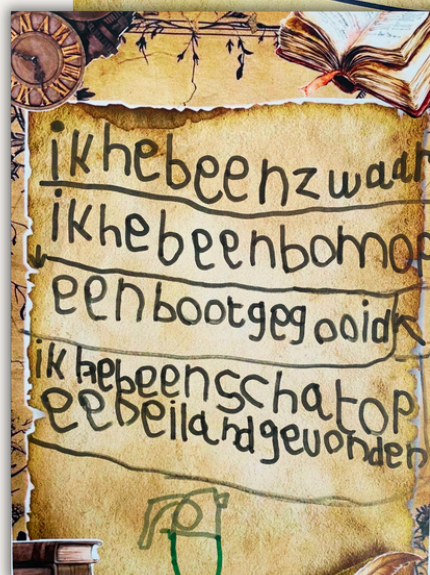 ikhebeenzwaar
ikhebeenbomop
eenbootgegooidk
ikhebeenschatop
eebeilandgevonden